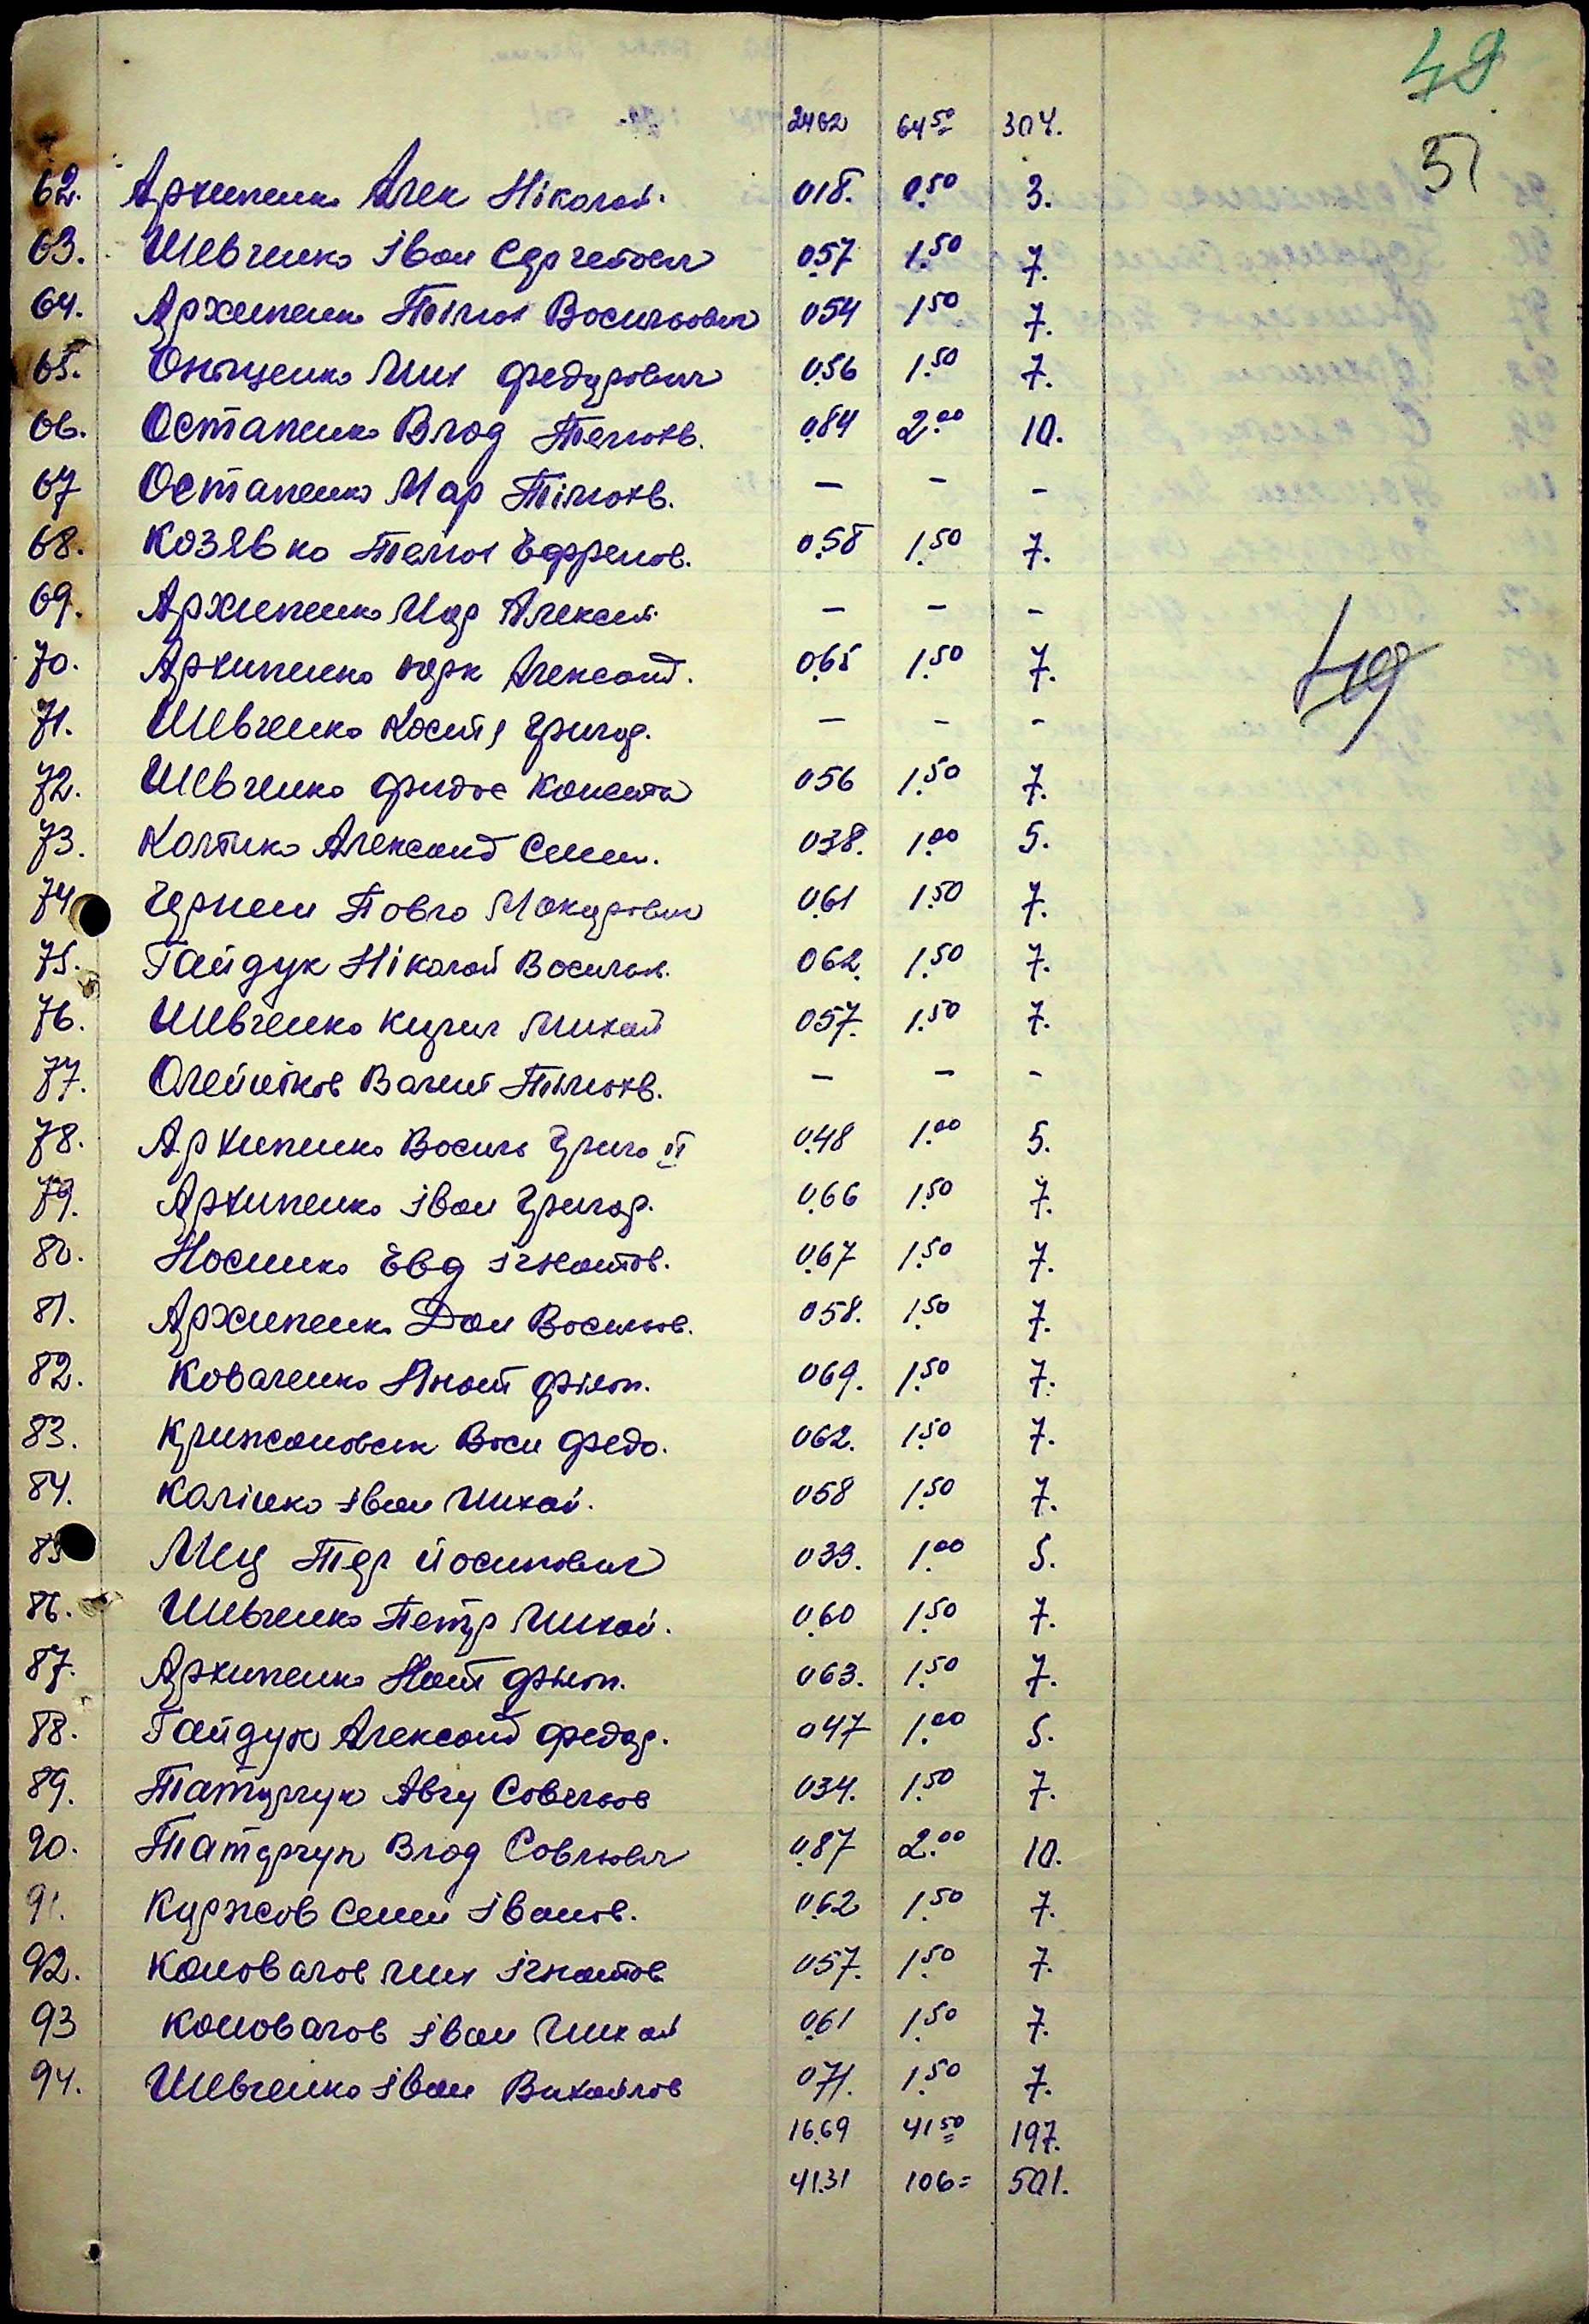 49
51
2462 64 50 304.
62. Архипенко Алек Ніколай. 0.18. 0.50 3.
63. Шевченко Іван Сергейович 0.57 1.50 7.
64. Архипенко Тімох Восильович 0.54 1.50 7.
65. Онищенко Мих Федорович 0.56 1.50 7.
66. Остапенко Влод Тімохв. 0.84 2.00 10.
67 Остапенко Мар Тімохв. — - -
68. Козявко Тімох Ефремов. 0.58 1.50 7.
69. Архипенко Мар Алексей. — - -
70. Архипенко Марк Александ. 0.65 1.50 7.
71. Шевченко Костя Григор. — - -
72. Шевченко Фидос Констан 0.56 1.50 7.
73. Колтико Александ Семен. 0.38. 1.00 5.
74 Черниш Повло Мокарович 0.61 1.50 7.
75. Гайдук Ніколай Восильов. 0.62. 1.50 7.
76. Шевченко Кирил Михай 0.57. 1.50 7.
77. Олейніков Валент Тімохв. — — -
78. Архипенко Восиль Григо II 0.48 1.00 5.
79. Архипенко Іван Григор. 0.66 1.50 7.
80. Носенко Евд Ігнатов. 0.67 1.50 7.
81. Архипенко Дан Восильов. 0.58. 1.50 7.
82. Коваленко Игнат Філип. 0.69. 1.50 7.
83. Крижановськ Васи Федо. 0.62. 1.50 7.
84. Калінко Іван Михай. 0.58 1.50 7.
85 Мец Тер Йосипович 0.33. 1.00 5.
86. Шевченко Петр Михай. 0.60 1.50 7.
87. Архипенко Игнат Филип. 0.63. 1.50 7.
88. Гайдук Александ Федор. 0.47 1.00 5.
89. Татарчук Авгу Савельов 0.34. 1.50 7.
90. Татарчук Влод Совлович 0.87 2.00 10.
91. Куржов Семен Іванов. 0.62 1.50 7.
92. Коновалов Мих Ігнатов 0.57. 1.50 7.
93 Коновалов Іван Михай 0.61 1.50 7.
94. Шевченко Іван Михайлов 0.71. 1.50 7.
16.69 41 50 197.
41.31 106= 501.